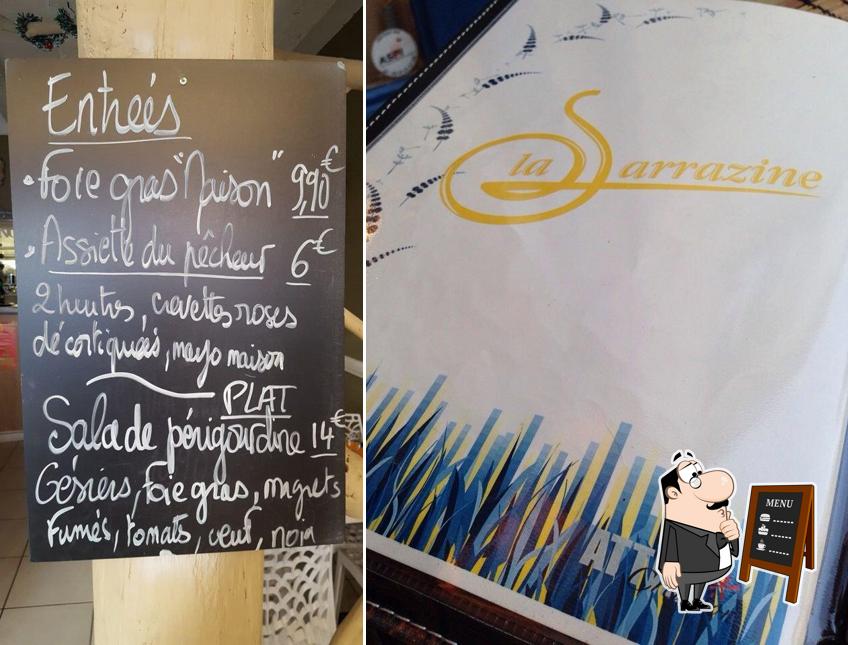 Entrées
• Foie gras "Maison" 9,90€
• Assiette du pêcheur 6€
2 huitres, crevettes roses
décortiquées, mayo maison
PLAT
Salade périgourdine 14€
Gésiers, foie gras, magrets
Fumés, tomats, oeuf, noix
la Sarrazine
ATT
MENU